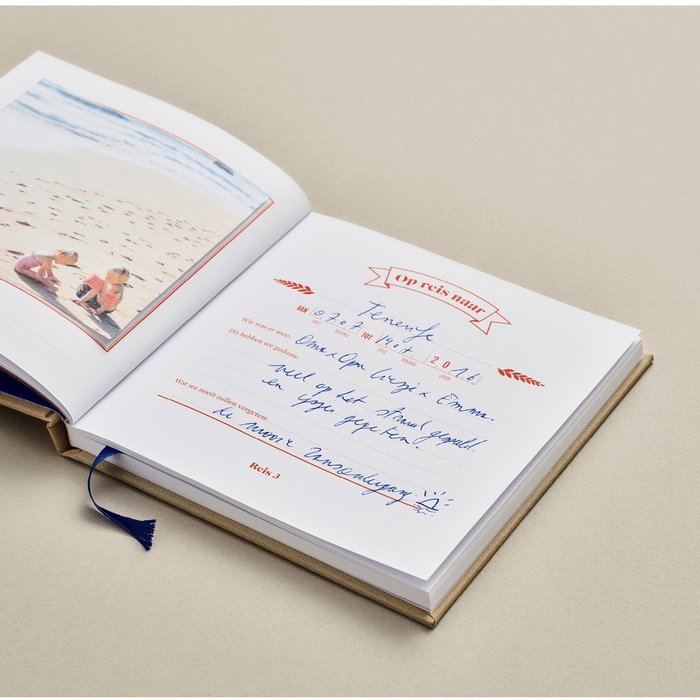 Op reis naar
Tenerife
VAN 07.07 TOT 14.07 2016
DAG MAAND DAG MAAND JAAR
Wie was er mee: Oma & Opa Luigi & Emma.
Dit hebben we gedaan: veel op het strand gespeeld.
en ijsjes gegeten.
Wat we nooit zullen vergeten:
de mooie zonsondergang.
Reis 3